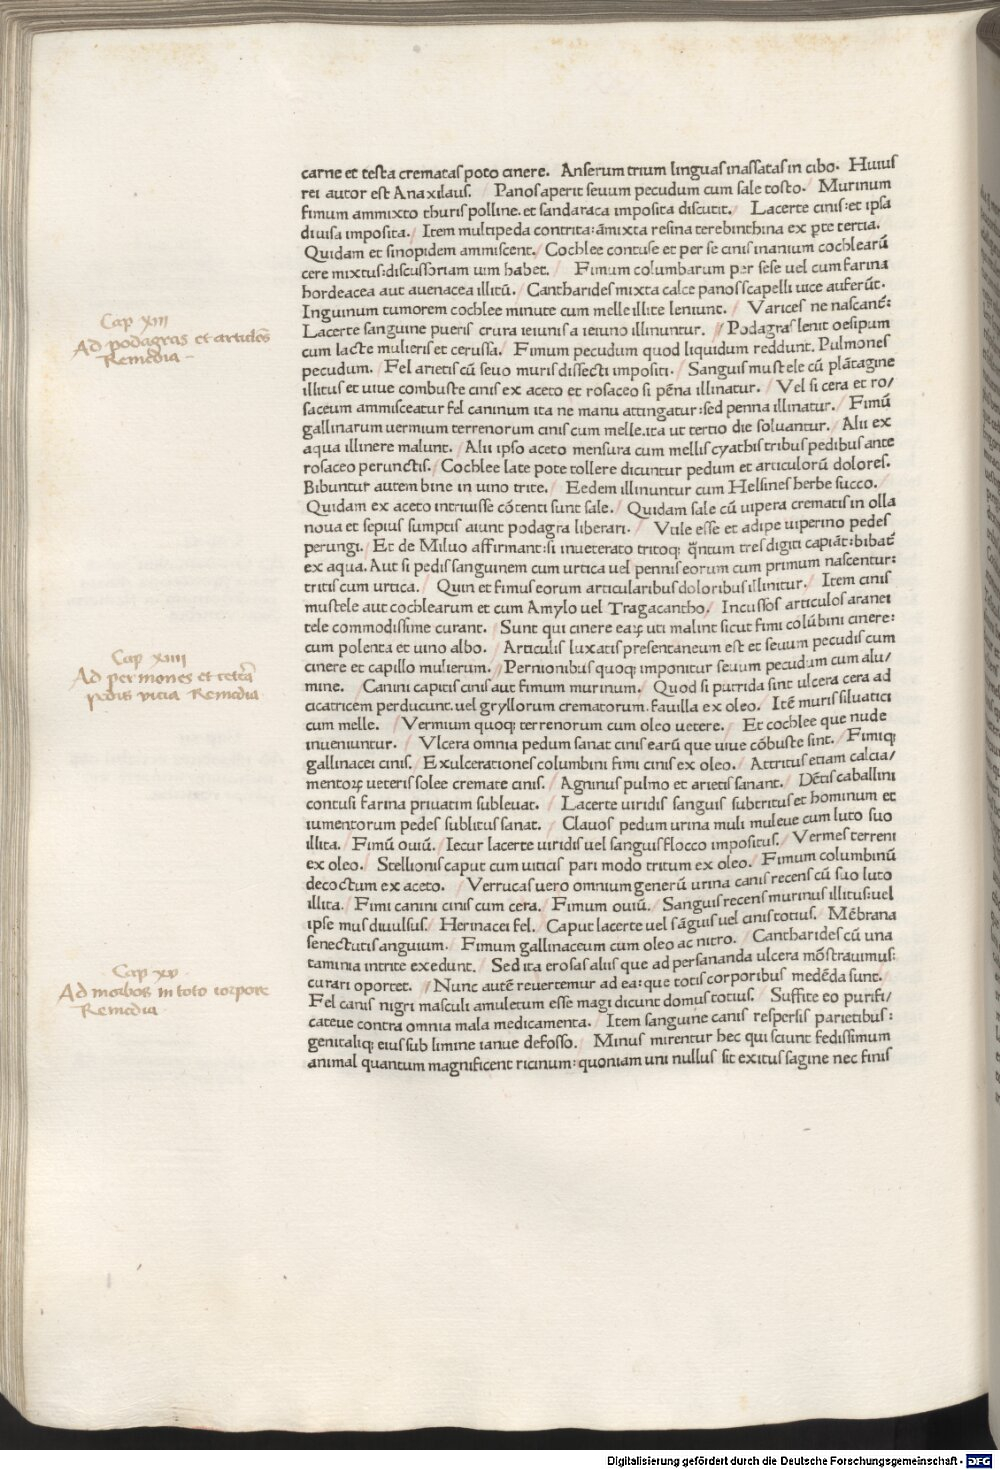 carne et testa crematas poto cinere. Anserum trium linguas inassatas in cibo. Huius
rei autor est Anaxilaus. Panos aperit seuum pecudum cum sale tosto. Murinum
fimum ammixto thuris polline. et sandaraca imposita discutit. Lacerte cinis: et ipsa
diuisa imposita. Item multipeda contrita: āmixta resina terebinthina ex ꝑte tertia.
Quidam et sinopidem ammiscent. Cochlee contuse et per se cinis inanium cochlearū
cere mixtus: discussoriam uim habet. Fimum columbarum per sese uel cum farina
hordeacea aut auenacea illitū. Cantharides mixta calce panos scapelli uice auferūt.
Inguinum tumorem cochlee minute cum melle illite leniunt. Varices ne nascant᷑:
Lacerte sanguine pueris crura ieiunis a ieiuno illinuntur. Podagras lenit oesipum
cum lacte mulieris et cerussa. Fimum pecudum quod liquidum reddunt. Pulmones
pecudum. Fel arietis cū seuo muris dissecti impositi. Sanguis mustele cū plātagine
illitus et uiue combuste cinis ex aceto et rosaceo si pēna illinatur. Vel si cera et ro/
saceum ammisceatur fel caninum ita ne manu attingatur: sed penna illinatur. Fimū
gallinarum uermium terrenorum cinis cum melle. ita ut tertio die soluantur. Alii ex
aqua illinere malunt. Alii ipso aceto mensura cum mellis cyathis tribus pedibus ante
rosaceo perunctis. Cochlee late pote tollere dicuntur pedum et articulorū dolores.
Bibuntur autem bine in uino trite. Eedem illinuntur cum Helsines herbe succo.
Quidam ex aceto intriuisse cōtenti sunt sale. Quidam sale cū uipera crematis in olla
noua et sepius sumptis aiunt podagra liberari. Vtile esse et adipe uiperino pedes
perungi. Et de Miluo affirmant: si inueterato tritoq; q̄ntum tres digiti capiāt: bibat᷑
ex aqua. Aut si pedis sanguinem cum urtica uel pennis eorum cum primum nascentur:
tritis cum urtica. Quin et fimus eorum articularibus doloribus illinitur. Item cinis
mustele aut cochlearum et cum Amylo uel Tragacantho. Incussos articulos aranei
tele commodissime curant. Sunt qui cinere eaꝝ uti malint sicut fimi colūbini cinere:
cum polenta et uino albo. Articulis luxatis presentaneum est et seuum pecudis cum
cinere et capillo mulierum. Pernionibus quoq; imponitur seuum pecudum cum alu/
mine. Canini capitis cinis aut fimum murinum. Quod si putrida sint ulcera cera ad
cicatricem perducunt. uel gryllorum crematorum. fauilla ex oleo. Itē muris siluatici
cum melle. Vermium quoq; terrenorum cum oleo uetere. Et cochlee que nude
inueniuntur. Vlcera omnia pedum sanat cinis earū que uiue cōbuste sint. Fimiq;
gallinacei cinis. Exulcerationes columbini fimi cinis ex oleo. Attritus etiam calcia/
mentoꝝ ueteris solee cremate cinis. Agninus pulmo et arietis sanant. Dētis caballini
contusi farina priuatim subleuat. Lacerte uiridis sanguis subtritus et hominum et
iumentorum pedes sublitus sanat. Clauos pedum urina muli muleue cum luto suo
illita. Fimū ouiū. Iecur lacerte uiridis uel sanguis flocco impositus. Vermes terreni
ex oleo. Stellionis caput cum uiticis pari modo tritum ex oleo. Fimum columbinū
decoctum ex aceto. Verrucas uero omnium generū urina canis recens cū suo luto
illita. Fimi canini cinis cum cera. Fimum ouiū. Sanguis recens murinus illitus: uel
ipse mus diuulsus. Herinacei fel. Caput lacerte uel sāguis uel cinis totius. Mēbrana
senectutis anguium. Fimum gallinaceum cum oleo ac nitro. Cantharides cū una
taminia intrite exedunt. Sed ita erosas aliis que ad persananda ulcera mōstrauimus:
curari oportet. Nunc autē reuertemur ad ea: que totis corporibus medēda sunt.
Fel canis nigri masculi amuletum esse magi dicunt domus totius. Suffite eo purifi/
cateue contra omnia mala medicamenta. Item sanguine canis respersis parietibus:
genitaliq; eius sub limine ianue defosso. Minus mirentur hec qui sciunt fedissimum
animal quantum magnificent ricinum: quoniam uni nullus sit exitus sagine nec finis
Cap xiii
Ad podagras et articulos
Remedia -
Cap xiiii
Ad perniones et cetera
pedis vitia Remedia
Cap xv
Ad morbos in toto corpore
Remedia
Digitalisierung gefördert durch die Deutsche Forschungsgemeinschaft - DFG